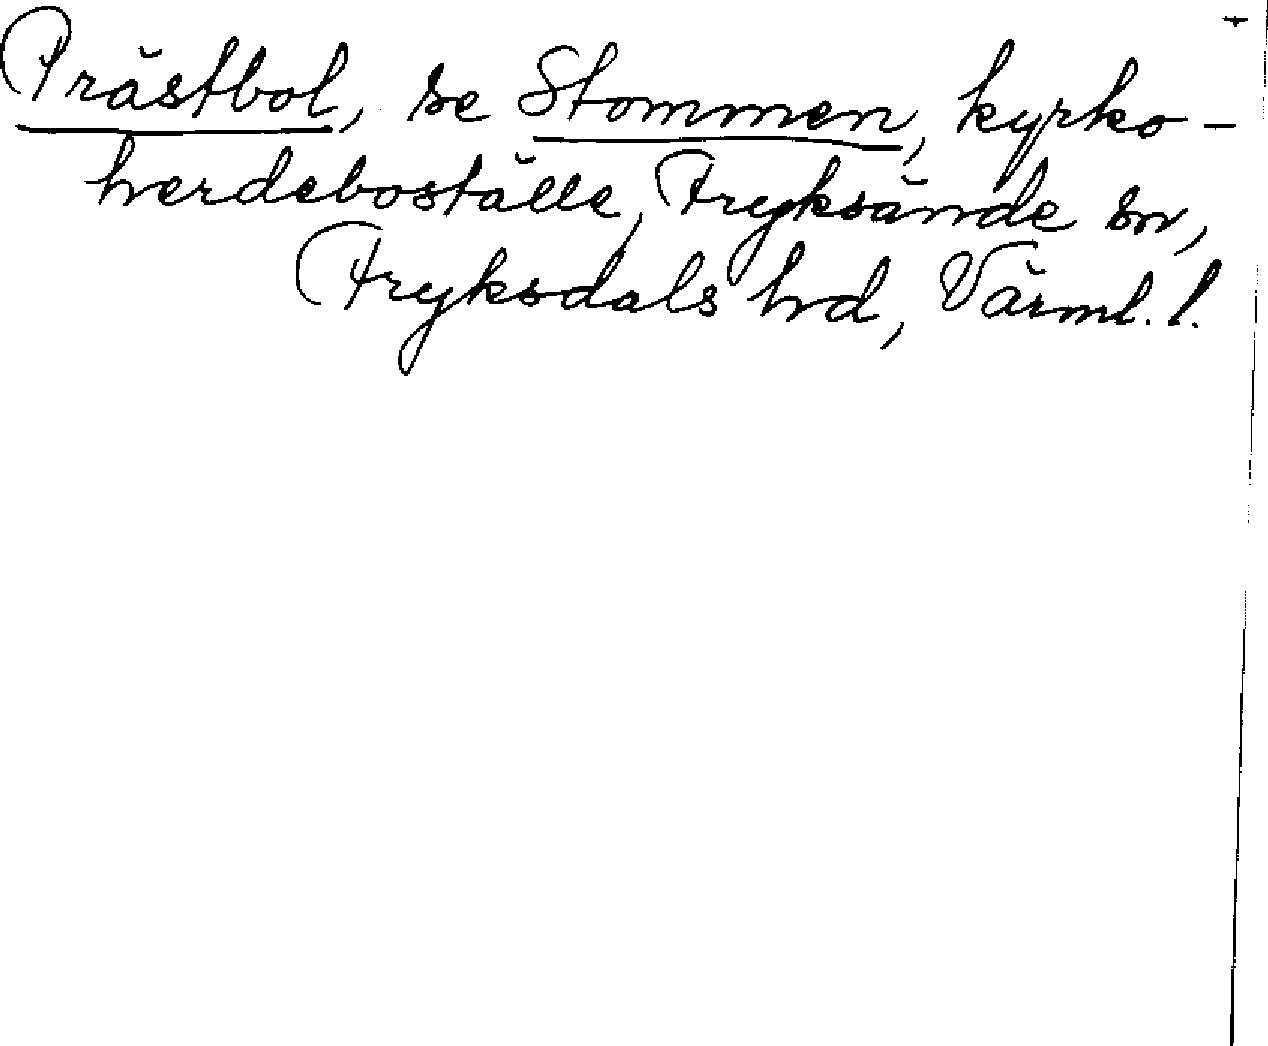 Prästbol, se Stommen, kyrko-
herdeboställe, Fryksände sn,
Fryksdals hd, Värml. l.